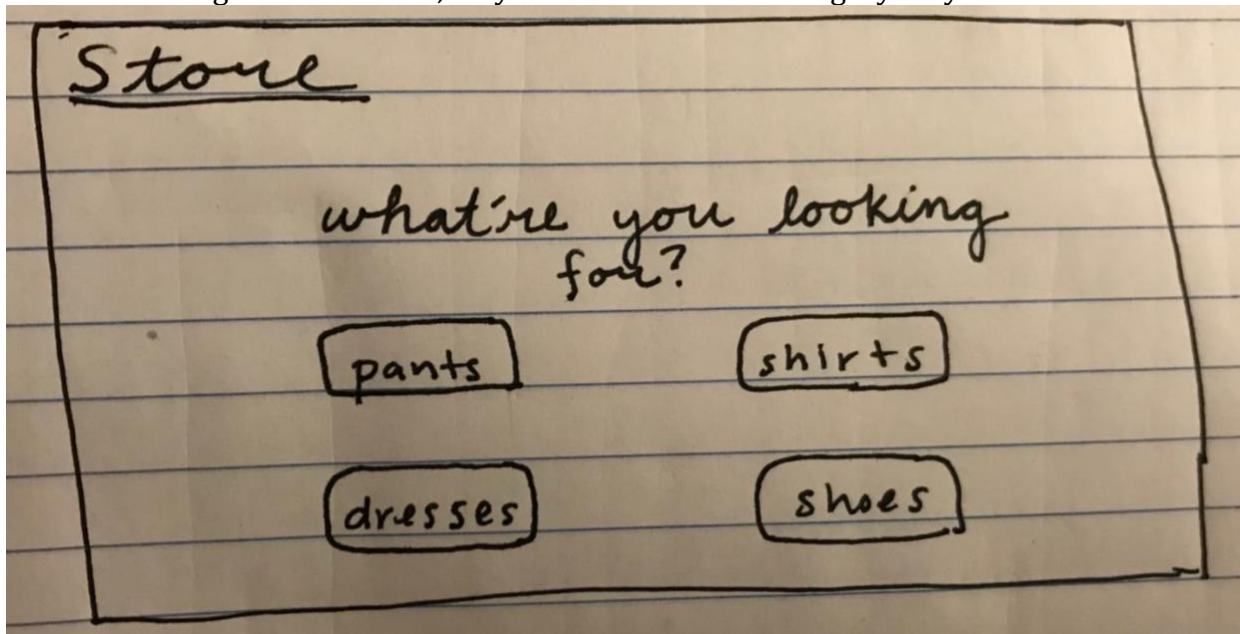 Store
what're you looking
for?
pants
shirts
dresses
shoes